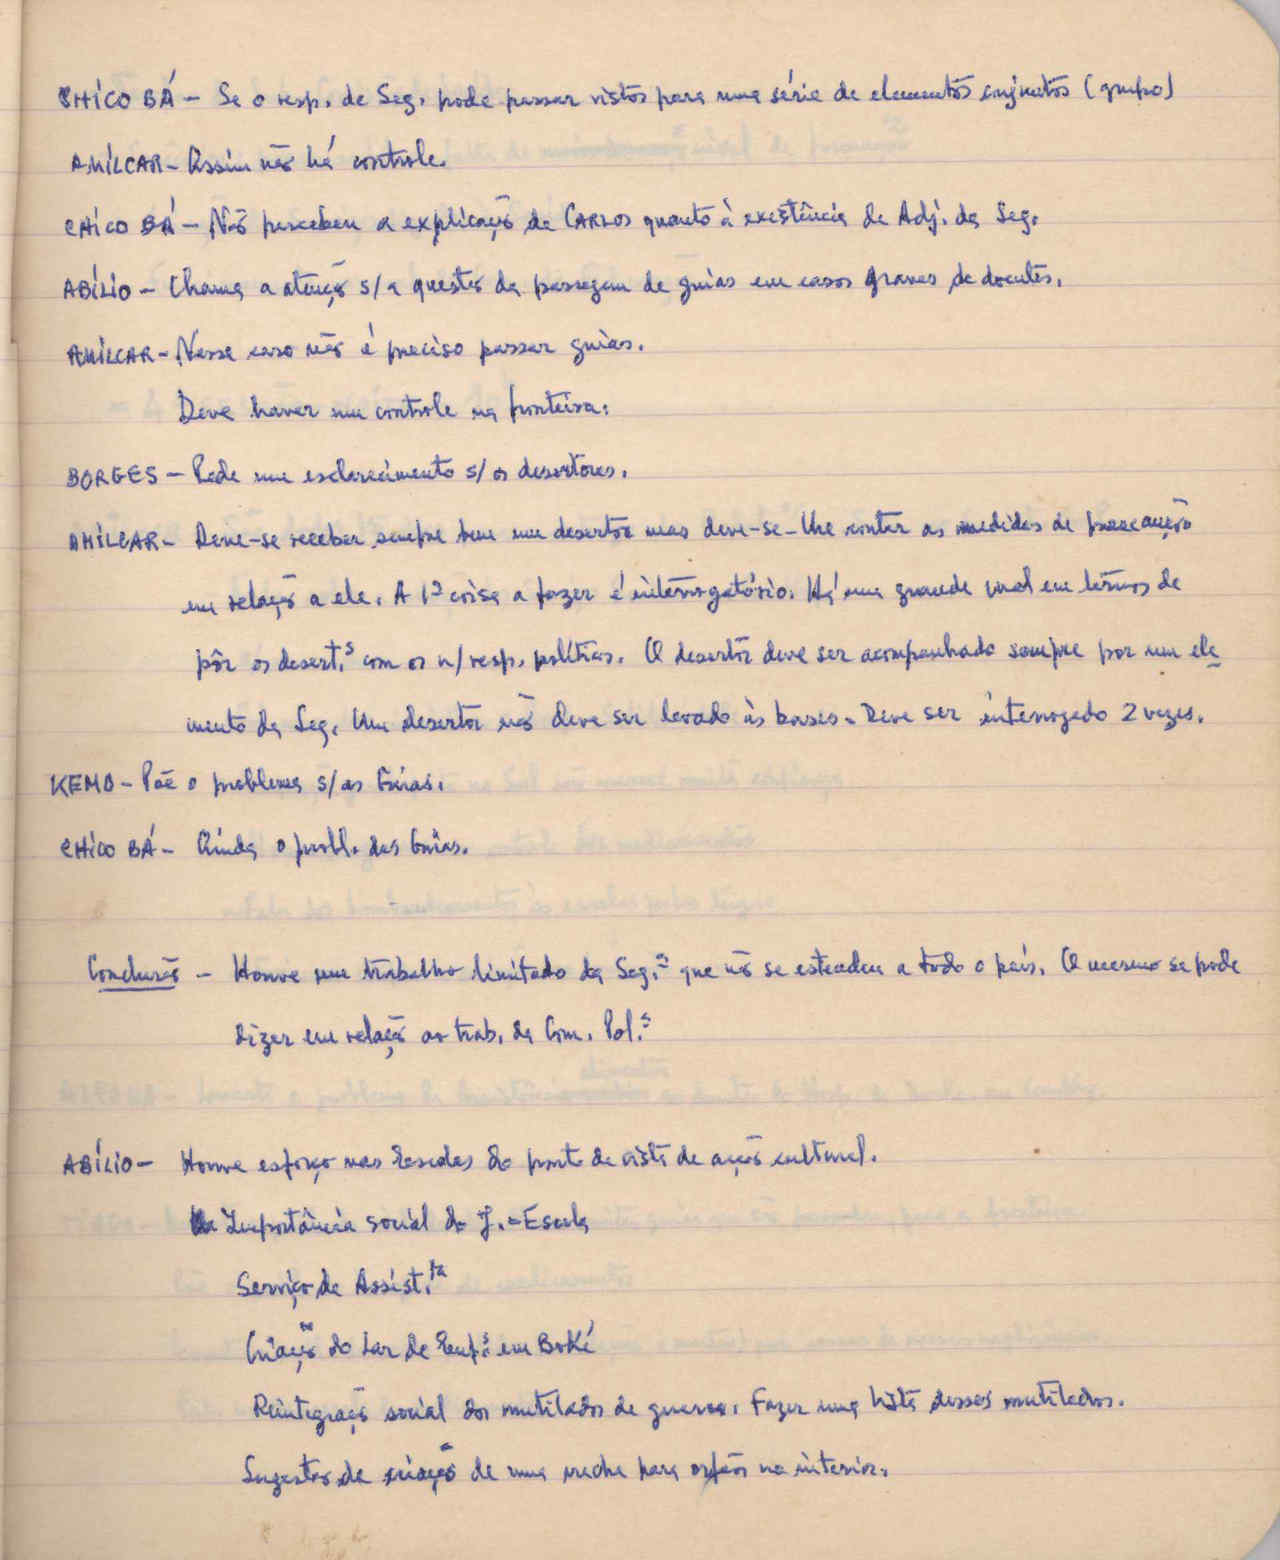 CHICO BÁ - Se o resp. de Seg. pode passar vistos para uma série de elementos conjuntos (grupo)
AMÍLCAR - Assim não há controle.
CHICO BÁ - Não percebeu a explicação de CARLOS quanto à existência de Adj. da Seg.
ABÍLIO - Chama a atenção s/ a questão da passagem de guias em casos graves de doentes.
AMÍLCAR - Nesse caso não é preciso passar guias.
Deve haver um controle na fronteira.
BORGES - Pede um esclarecimento s/ os desertores.
AMÍLCAR - Deve-se receber sempre bem um desertor mas deve-se-lhe contar as medidas de precaução
em relação a ele. A 1ª coisa a fazer é interrogatório. Há um grande mal em termos de
pôr os desert.s com os n/ resp. políticos. O desertor deve ser acompanhado sempre por um ele
mento da Seg. Um desertor não deve ser levado às bases. Deve ser interrogado 2 vezes.
KEMO - Põe o problema s/ as Guias.
CHICO BÁ - Ainda o probl. das Guias.
Conclusão - Houve um trabalho limitado da Seg.ª que não se estendeu a todo o país. O mesmo se pode
dizer em relação ao trab. da Com. Pol.ª
ABÍLIO - Houve esforço nas Escolas do ponto de vista de ação cultural.
Importância social do J.-Escola
Serviço de Assist.ia
Criação do Lar de Emp.s em Boké
Reintegração social dos mutilados de guerra. Fazer uma lista desses mutilados.
Sugestão de criação de uma creche para orfãos no interior.